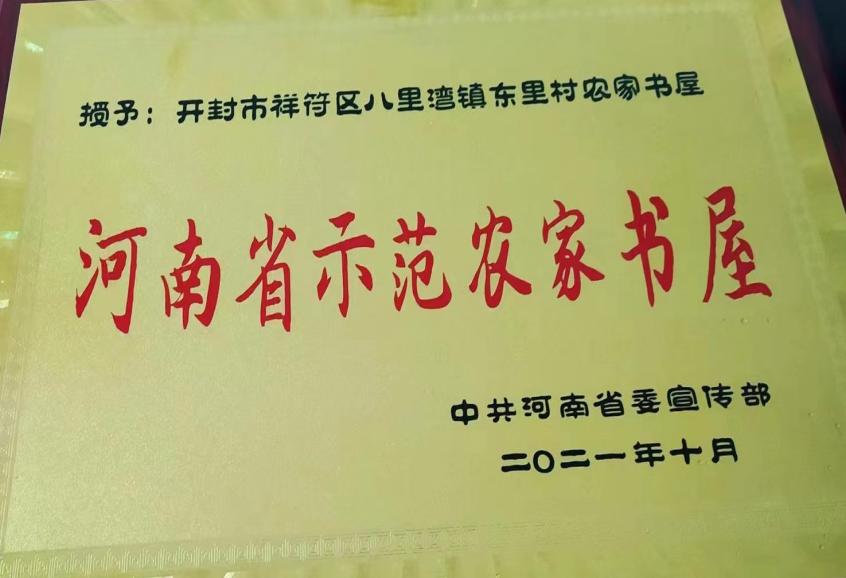 授予：开封市祥符区八里湾镇东里村农家书屋
河南省示范农家书屋
中共河南省委宣传部
二〇二一年十月